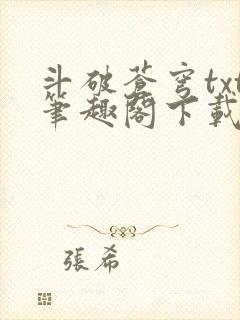 斗破蒼穹txt
筆趣閣下載
張希